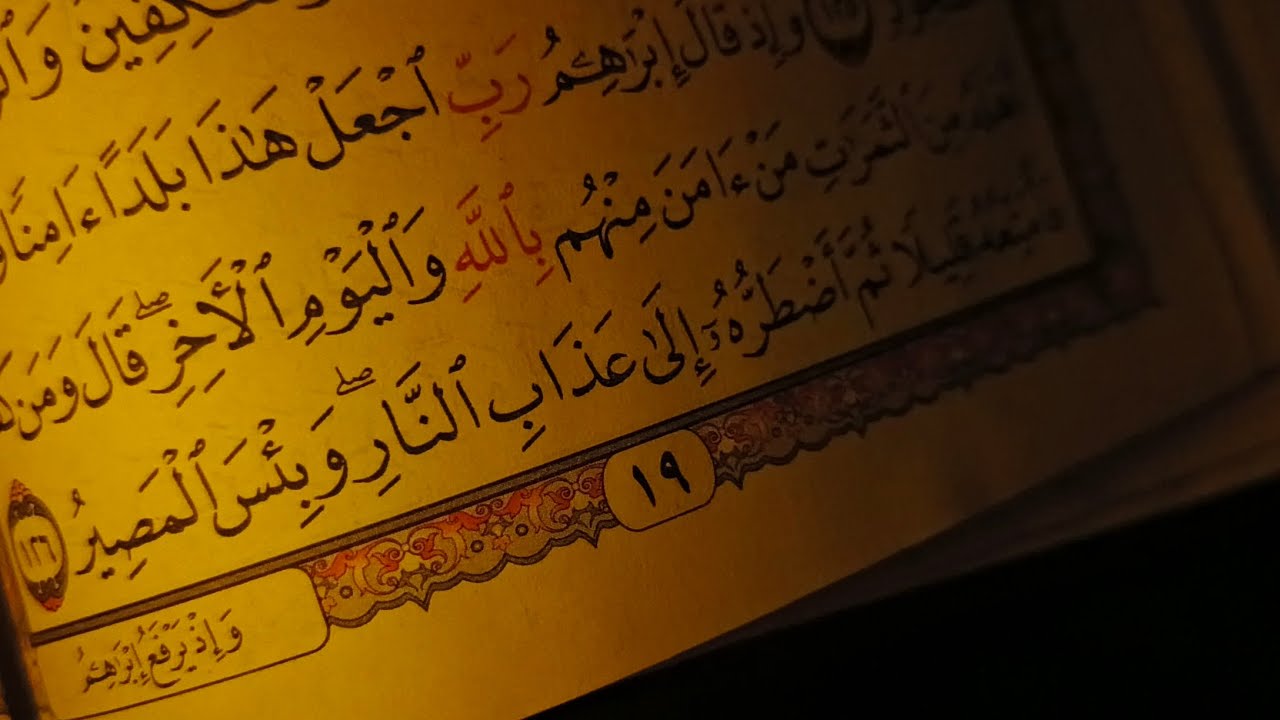 وَٱلْعَٰكِفِينَ
١٢٥ وَإِذْ قَالَ إِبْرَٰهِـۧمُ رَبِّ ٱجْعَلْ هَٰذَا بَلَدًا ءَامِنًا
مِنَ ٱلثَّمَرَٰتِ مَنْ ءَامَنَ مِنْهُم بِٱللَّهِ وَٱلْيَوْمِ ٱلْأَخِرِ ۖ قَالَ وَمَن
فَأُمَتِّعُهُۥ قَلِيلًا ثُمَّ أَضْطَرُّهُۥٓ إِلَىٰ عَذَابِ ٱلنَّارِ ۖ وَبِئْسَ ٱلْمَصِيرُ ١٢٦
١٩
وَإِذْ يَرْفَعُ إِبْرَٰهِـۧمُ